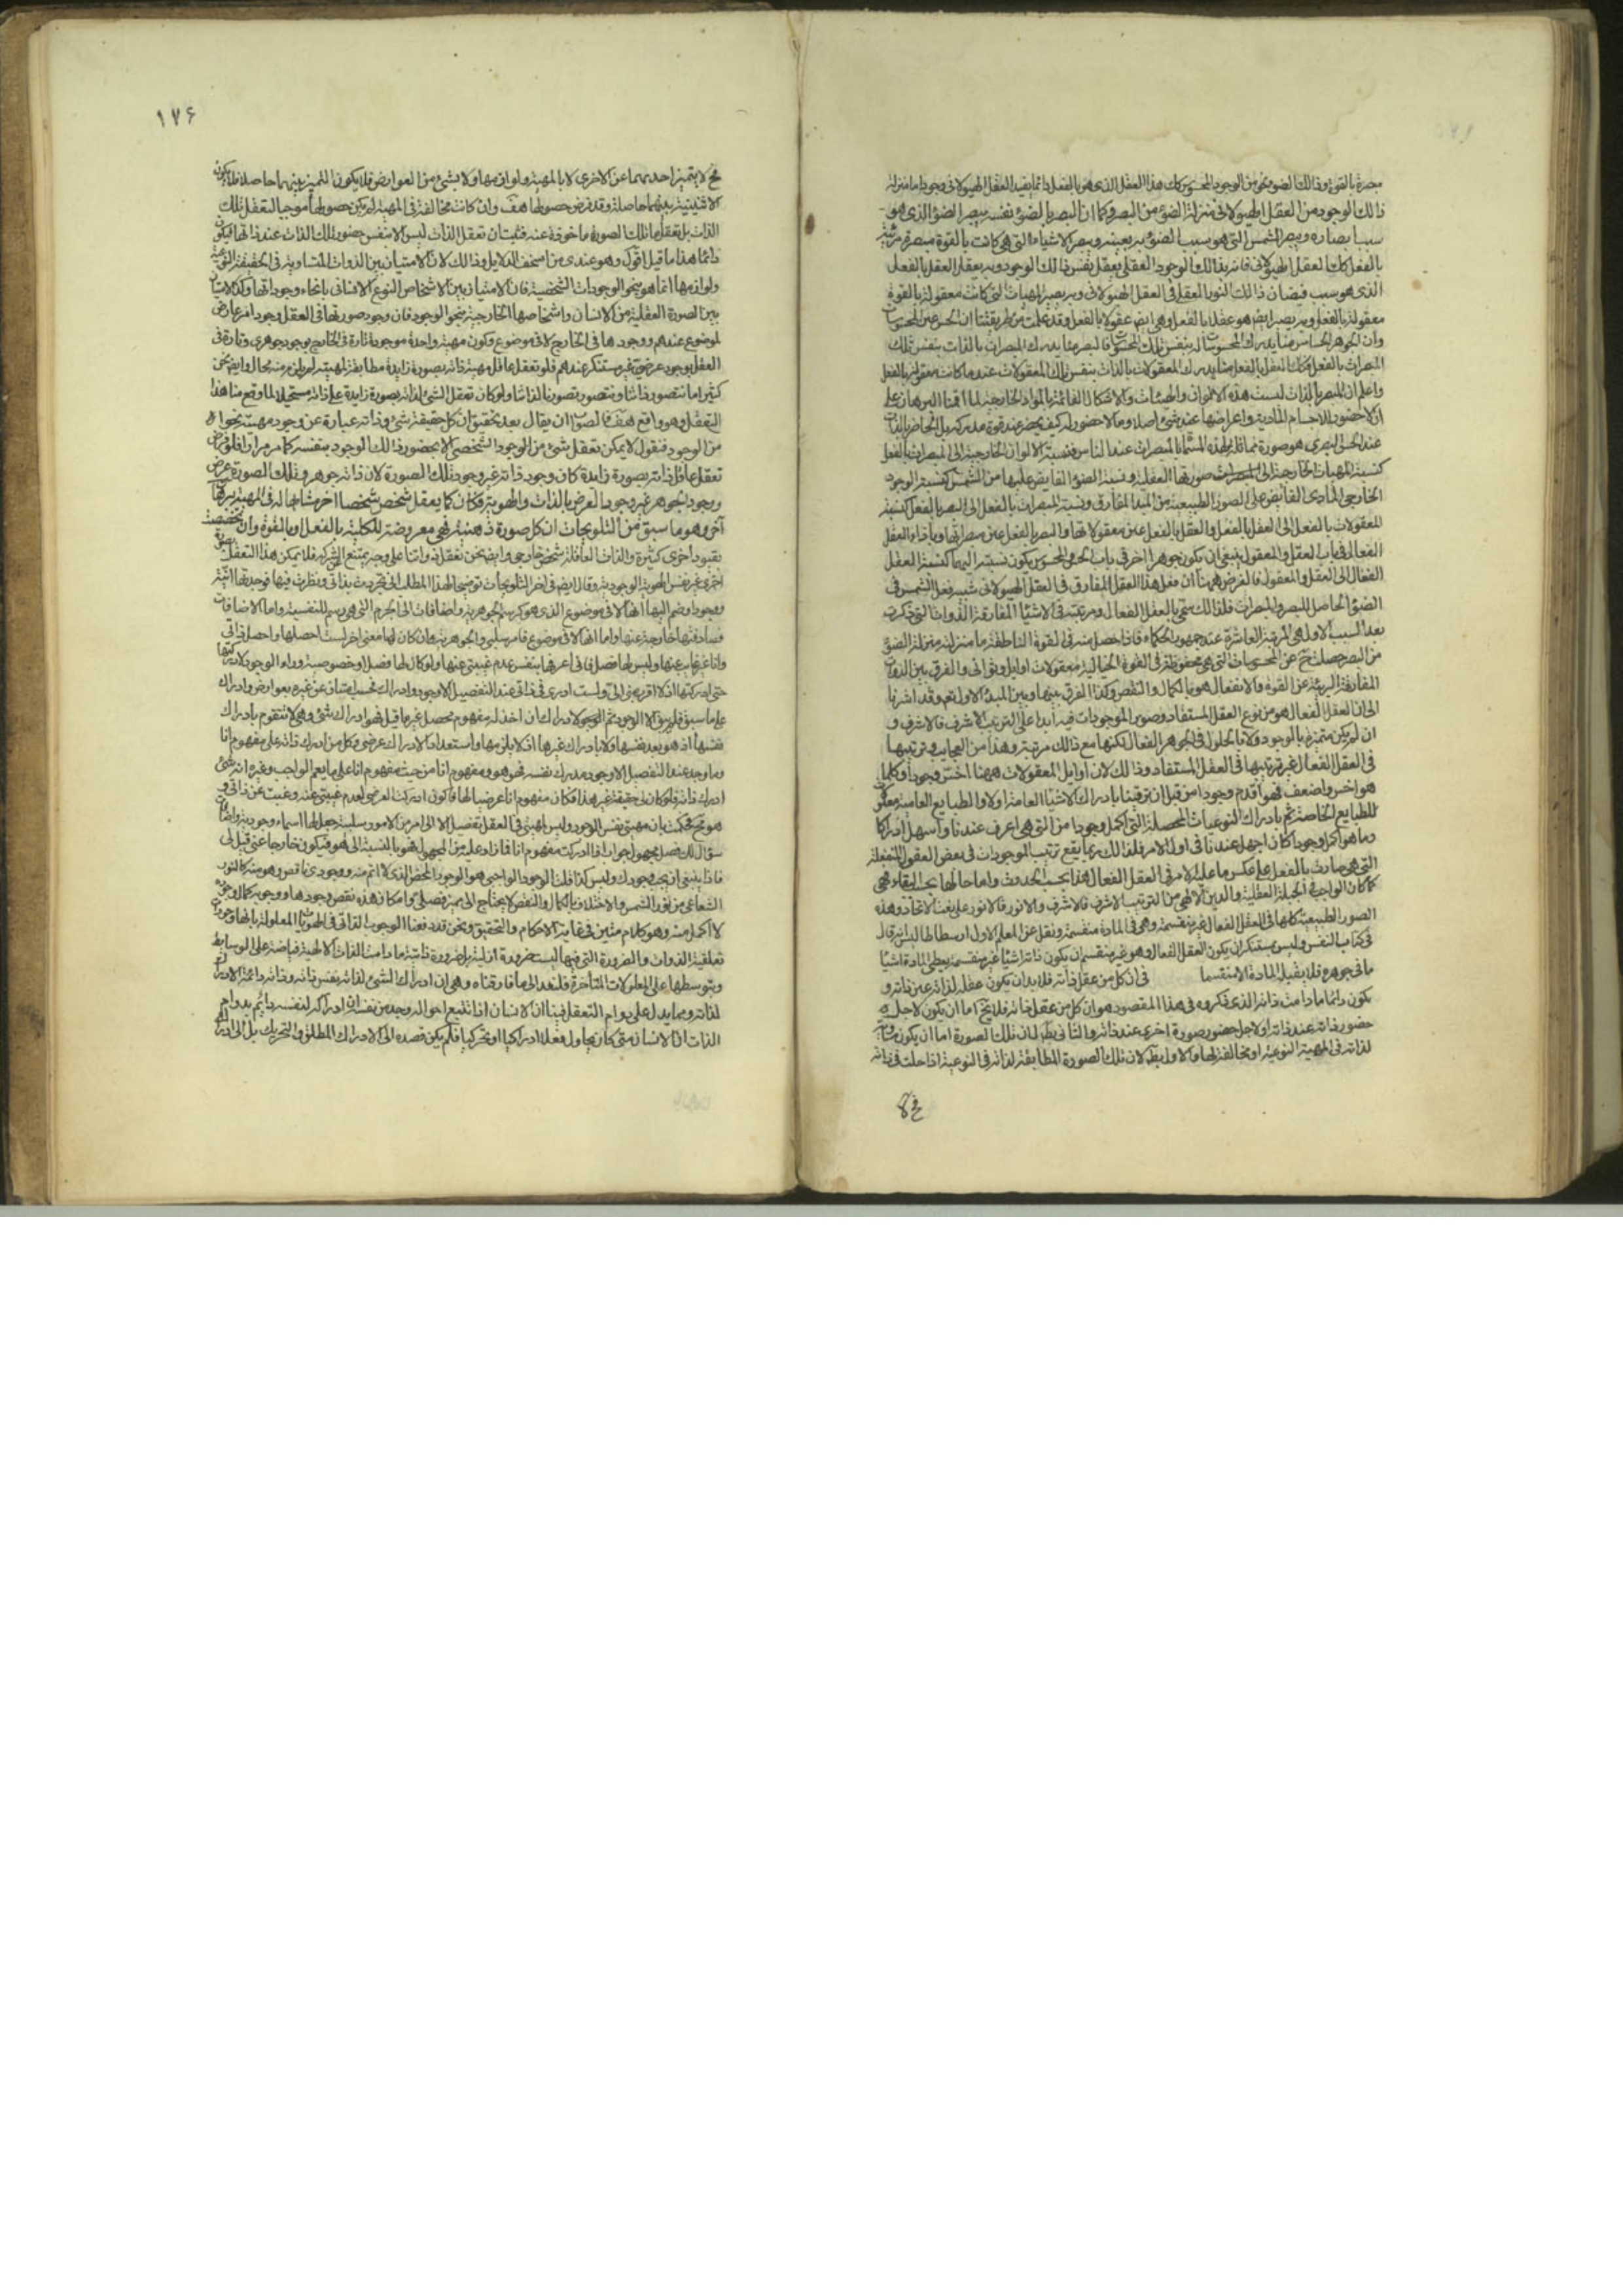 مبصرة بالقوة وذلك الضوء نحو من الوجود المحسوس كك هذا العقل الذى هو بالفعل دائما يفيد العقل الهيولانى وجودا ما منزلة
ذلك الوجود من العقل الهيولانى منزلة الضوء من البصر وكما ان البصر بالضوء نفسه يبصر الضوء الذى هو
سبب ابصاره ويبصر الشمس التى هو سبب الضوء به بعينه ويبصر الاشياء التى هى كانت بالقوة مبصرة مرئية
بالفعل كك العقل الهيولانى فانه بذلك الوجود العقلى يعقل نفس ذلك الوجود وبه يعقل العقل بالفعل
الذى هو سبب فيضان ذلك النور العقلى فى العقل الهيولانى وبه يصير المهيات التى كانت معقولة بالقوة
معقولة بالفعل وبه يصير ايض هو عقلا بالفعل وهى ايض عقولا بالفعل وقد علمت من طريقتنا ان الحس عين المحسوسات
وان الجوهر الحساس منا يدرك المحسوسات له بنفس تلك المحسوسات فالبصر منا يدرك المبصرات بالذات بنفس تلك
المبصرات بالفعل وكك العقل بالفعل منا يدرك المعقولات بالذات بنفس تلك المعقولات عند ما كانت معقولة بالفعل
واعلم ان المبصر بالذات ليست هذه الالوان والهيئات والاشكال القائمة بالمواد الخارجية لما اقمنا البرهان على
ان لا حضور للاجسام المادية واعراضها عند شئ اصلا وما لا حضور له كيف يحضر عند قوة مدركة بل الحاضر بالذات
عند الحس البصرى هو صورة مماثلة لهذه المسماة بالمبصرات عند الناس فنسبة الالوان الخارجية الى المبصرات بالفعل
كنسبة المهيات الخارجة الى صورتها العقلية ونسبة الضوء الفايض عليها من الشمس كنسبة الوجود
الخارجى المادى الفايض على الصور الطبيعية من المبدا المفارق ونسبة المبصرات بالفعل الى البصر بالفعل كنسبة
المعقولات بالفعل الى العقل بالفعل والعقل بالفعل عين معقولاتها والبصر بالفعل عين مبصراتها وبأزاء العقل
الفعال فى باب العقل والمعقول ينبغى ان يكون جوهرا اخر فى باب الحس والمحسوس يكون نسبته اليهما كنسبة العقل
الفعال الى العقل والمعقول فالغرض ههنا ان فعل هذا العقل المفارق فى العقل الهيولانى شبيه فعل الشمس فى
الضوء الحاصل للبصر والمبصرات فلذلك سمى بالعقل الفعال ومرتبته فى الاشياء المفارقة الذوات التى ذكرت
بعد السبب الاول هى المرتبة العاشرة عند جمهور الحكماء فاذا حصل منه فى القوة الناطقة ما منزلته منزلة الضوء
من البصر حصلت ح عن المحسوسات التى هى محفوظة فى القوة الخيالية معقولات اوايل وثوانى والفرق بين الذوات
المفارقة البريئة عن القوة والانفعال هو بالكمال والنقص وكذا الفرق بينها وبين المبدء الاول نعم وقد اشرنا
الى ان العقل الفعال هو من نوع العقل المستفاد وصور الموجودات فيه ابدا على الترتيب الاشرف فالاشرف و
ان لم يكن متميزة بالوجود ولا بالحلول فى الجوهر الفعال لكنها مع ذلك مرتبة وهذا من العجايب وترتيبها
فى العقل الفعال غير ترتيبها فى العقل المستفاد وذلك لان اوايل المعقولات ههنا اخس وجودا وكلما
هو اخس واضعف فهو اقدم وجودا من قبل ان ترقينا بادراك الاشياء العامة اولا والطبايع العامية معلوم
للطبايع الخاصة ثم بادراك النوعيات المحصلة التى اكمل وجودا من التى هى اعرف عندنا واسهل ادراكا
وما هو اكمل وجودا كان اجهل عندنا فى اول الامر فلذلك ربما يقع ترتيب الموجودات فى بعض العقول المنفعلة
التى هى صارت بالفعل على عكس ما عليه الامر فى العقل الفعال هذا بحسب الحدوث واما حالها بحسب البقاء فهى
كما كان الواجب فى الجبلة العقلية والدين الالهى من الترتيب الاشرف فالاشرف والانور فالانور على نعت الاتحاد وهذه
الصور الطبيعية كلها فى العقل الفعال غير منقسمة وهى فى المادة منقسمة ونقل عن المعلم الاول ارسطاطاليس انه قال
فى كتاب النفس وليس بمستنكر ان يكون العقل الفعال وهو غير منقسم ان يكون ذاته اشياء غير منقسمة يعطى المادة اشياء
ما فى جوهره فلا يقبله المادة الا منقسما فى ان كل من عقل ذاته فلا بد ان يكون عقله لذاته عين ذاته و
يكون دائما ما دامت ذاته الذى ذكروه فى هذا المقصود هو ان كل من عقل ذاته فلا يخ اما ان يكون لاجل
حضور ذاته عند ذاته او لاجل حضور صورة اخرى عند ذاته والثانى بط لان تلك الصورة اما ان يكون مساوية
لذاته فى المهية النوعية او مخالفة لها والاول بط لان تلك الصورة المطابقة لذاته فى النوعية اذا حلت فى ذاته
١٧۶
فح لا يتميز احديهما عن الاخرى لا بالمهية ولوازمها ولا بشئ من العوارض فلا يكون التميز بينهما حاصلا فلا يكون
الاثنينية بينهما حاصلة وقد فرض حصولها هف وان كانت مخالفة فى المهية لم يكن حصولها موجبا لتعقل تلك
الذات بل تعقل ما تلك الصورة ماخوذة عنه فثبت ان تعقل الذات ليس الا بنفس حضور تلك الذات عند ذاتها فيكون
دائما هذا ما قيل اقول وهو عندى من اسخف الدلايل وذلك لان الامتياز بين الذوات المتساوية فى الحقيقة النوعية
ولوازمها انما هو بنحو الوجودات الشخصية فان الامتياز بين الاشخاص النوع الانسانى بانحاء وجوداتها وكذا الامتياز
بين الصورة العقلية من الانسان واشخاصها الخارجية بنحو الوجود فان وجود صورتها فى العقل وجود امر عارض
لموضوع عندهم ووجودها فى الخارج لا فى موضوع وكون مهية واحدة موجودة تارة فى الخارج بوجود جوهرى وتارة فى
العقل بوجود عرضى غير مستنكر عندهم فلو تعقل عاقل مهية ذاته بصورة زايدة مطابقة لمهيته لم يلزم منه محال وايض نحن
كثيرا ما نتصور ذاتنا ونتصور تصورنا لذاتنا ولو كان تعقل الشئ لذاته بصورة زايدة على ذاته مستحيلا لما وقع منا هذا
التعقل وهو واقع هف فالصواب ان يقال بعد تحقيق ان كل حقيقة شئ وذاته عبارة عن وجود مهيته بنحو ما
من الوجود فنقول لا يمكن تعقل شئ من الوجود الشخصى الا بحضور ذلك الوجود بنفسه كما مر مرارا فلو فرض
تعقل عاقل ذاته بصورة زايدة كان وجود ذاته غير وجود تلك الصورة لان ذاته جوهر وتلك الصورة عرض
ووجود الجوهر غير وجود العرض بالذات والهوية فكان كما يعقل شخص شخصا اخر مشابها له فى المهية برهان
آخر وهو ما سبق من التلويحات ان كل صورة ذهنية فهى معروضة للكلية بالفعل او بالقوة وان تخصصت
بقيود اخرى كثيرة والذات العاقلة شخص خارجى وايض نحن نعقل ذواتنا على وجه يمتنع الشركة فلا يمكن هذا التعقل بصورة
اخرى غير نفس الهوية الوجودية وقال ايض فى اخر التلويحات توضيحا لهذا المطلب انى تجردت بذاتى ونظرت فيها فوجدتها انية
ووجودا وضم اليها انها لا فى موضوع الذى هو كرسم الجوهرية واضافات الى الجرم التى هى رسم للنفسية واما الاضافات
فصادفتها خارجة عنها واما انها لا فى موضوع فامر سلبى والجوهرية ان كان لها معنى اخر لست احصلها واحصل ذاتى
وانا غير غايب عنها وليس لها فصل فانى اعرفها بنفس عدم غيبتى عنها ولو كان لها فصل او خصوصية وراء الوجود لادركتها
حتى ادركتها اذ لا اقرب منى الى ولست ادرى فى ذاتى عند التفصيل الا وجود وادراك فحسب امتياز عن غيره بعوارض وادراك
على ما سبق فلم يبق الا الوجود ثم الوجود لادراك ان اخذ له مفهوم محصل غير ما قيل فهو ادراك شئ وهى لا تتقوم بادراك
نفسها اذ هو بعد نفسها ولا بادراك غيرها اذ لا يلزمها واستعداد الادراك عرضى وكل من ادرك ذاته على مفهوم انا
وما وجد عند التفصيل الا وجود مدرك نفسه فهو هو ومفهوم انا من حيث مفهوم انا على ما يعم الواجب وغيره انه شئ
ادرك ذاته فلو كان لى حقيقة غير هذا فكان مفهوم انا عرضيا لها فاكون ادركت العرضى لعدم غيبتى عنه وغبت عن ذاتى و
هو مح فحكمت بان مهيتى نفس الوجود وليس لمهيتى فى العقل تفصيل الا الى امرين الامور سلبية جعل لها اسماء وجودية واضافات
سؤال لك فصل مجهول جواب اذا ادركت مفهوم انا فما زاد عليه من المجهول فهو بالنسبة الى هو فيكون خارجا عنى قيل لى
فاذا ينبغى ان يجب وجودك وليس كذا قلت الوجود الواجبى هو الوجود المحض الذى لا اتم منه ووجودى ناقص وهو منه كالنور
الشعاعى من نور الشمس والاختلاف بالكمال والنقص لا يحتاج الى مميز فصلى وامكان هذه نقص وجودها ووجوبه كمال وجوده
لا اكمل منه وهو كلام متين فى غاية الاحكام والتحقيق ونحن قد دفعنا الوجوب الذاتى فى الهويات المعلولة بانها وجودات
تعلقية الذوات والضرورة التى فيها ليست ضرورة ازلية بل ضرورة ذاتية ما دامت الذات الالهية فياضة على الوسايط
وبتوسطها على المعلولات المتأخرة فلنعد الى ما فارقناه وهى ان ادراك الشئ لذاته نفس ذاته وذاته دائمة الادراك
لذاته ومما يدل على دوام التعقل فينا ان الانسان اذا تتبع احواله وجد من نفسه ان ادراكه لنفسه دائم بدوام
الذات اذ الانسان متى كان يحاول فعلا ادراكيا او تحريكيا فلم يكن قصده الى الادراك المطلق والتحريك بل الى ادراك